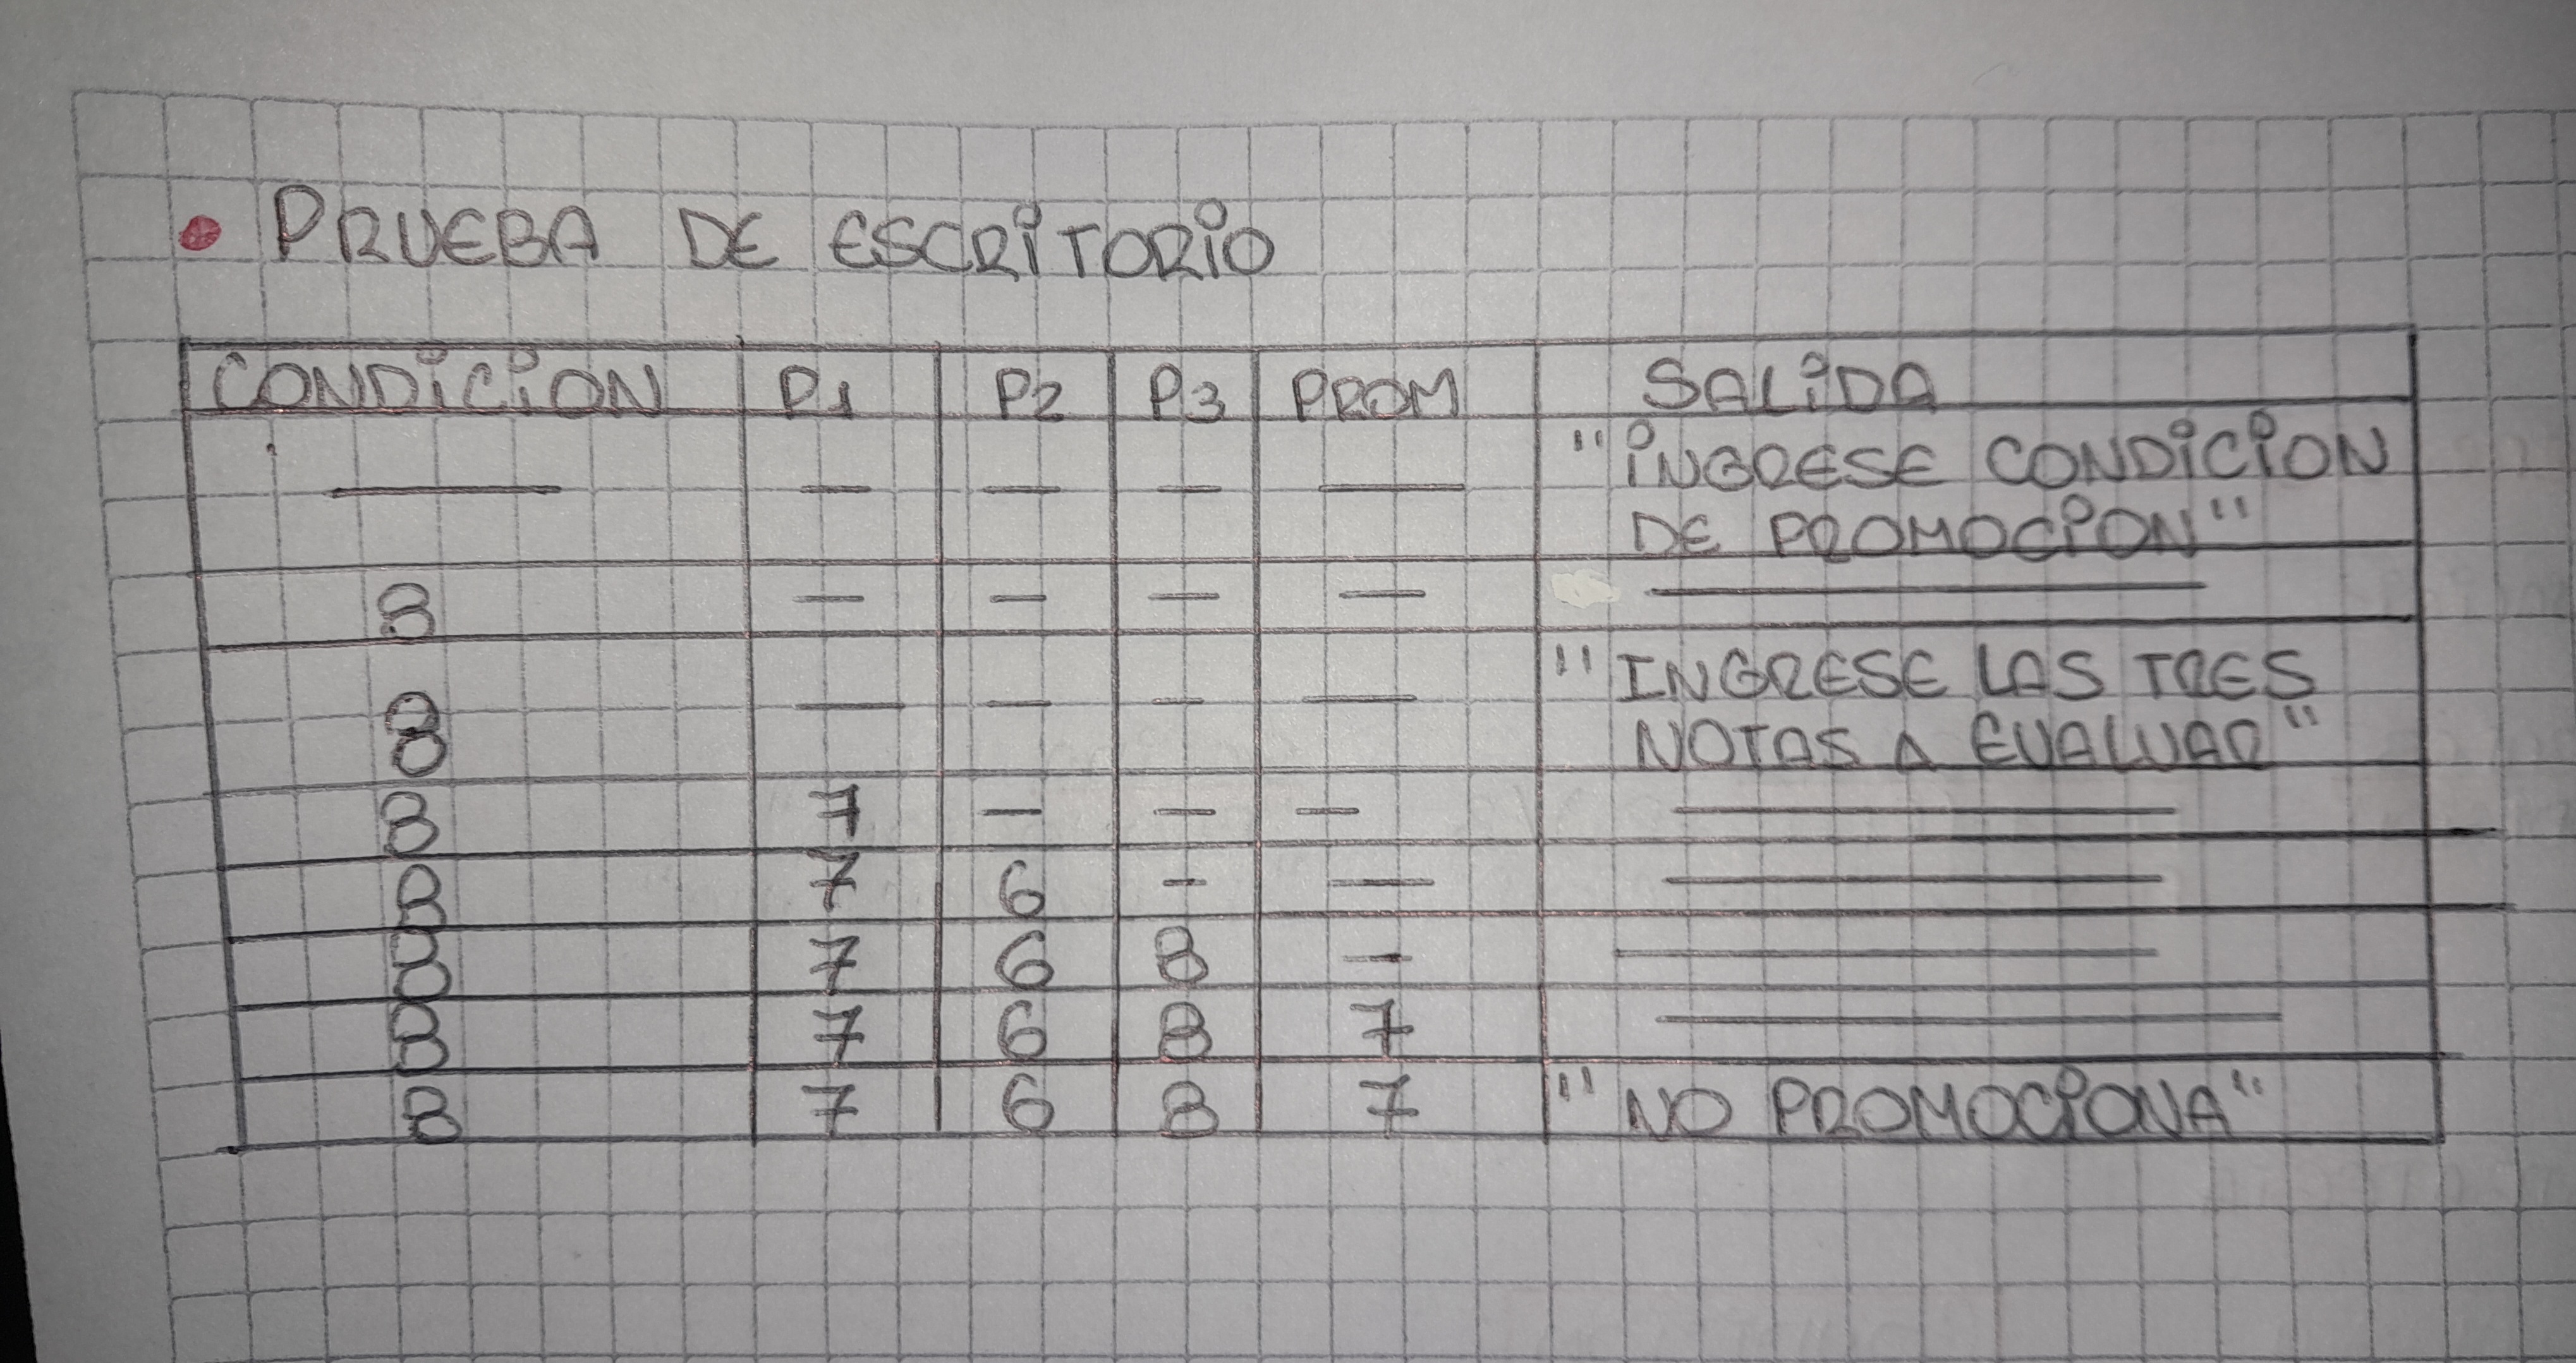 • PRUEBA DE ESCRITORIO
CONDICION P1 P2 P3 PROM SALIDA
— — — — — "INGRESE CONDICION
DE PROMOCION"
8 — — — — —
8 — — — — "INGRESE LAS TRES
NOTAS A EVALUAR"
8 7 — — — —
8 7 6 - — —
8 7 6 8 — —
8 7 6 8 7 —
8 7 6 8 7 "NO PROMOCIONA"